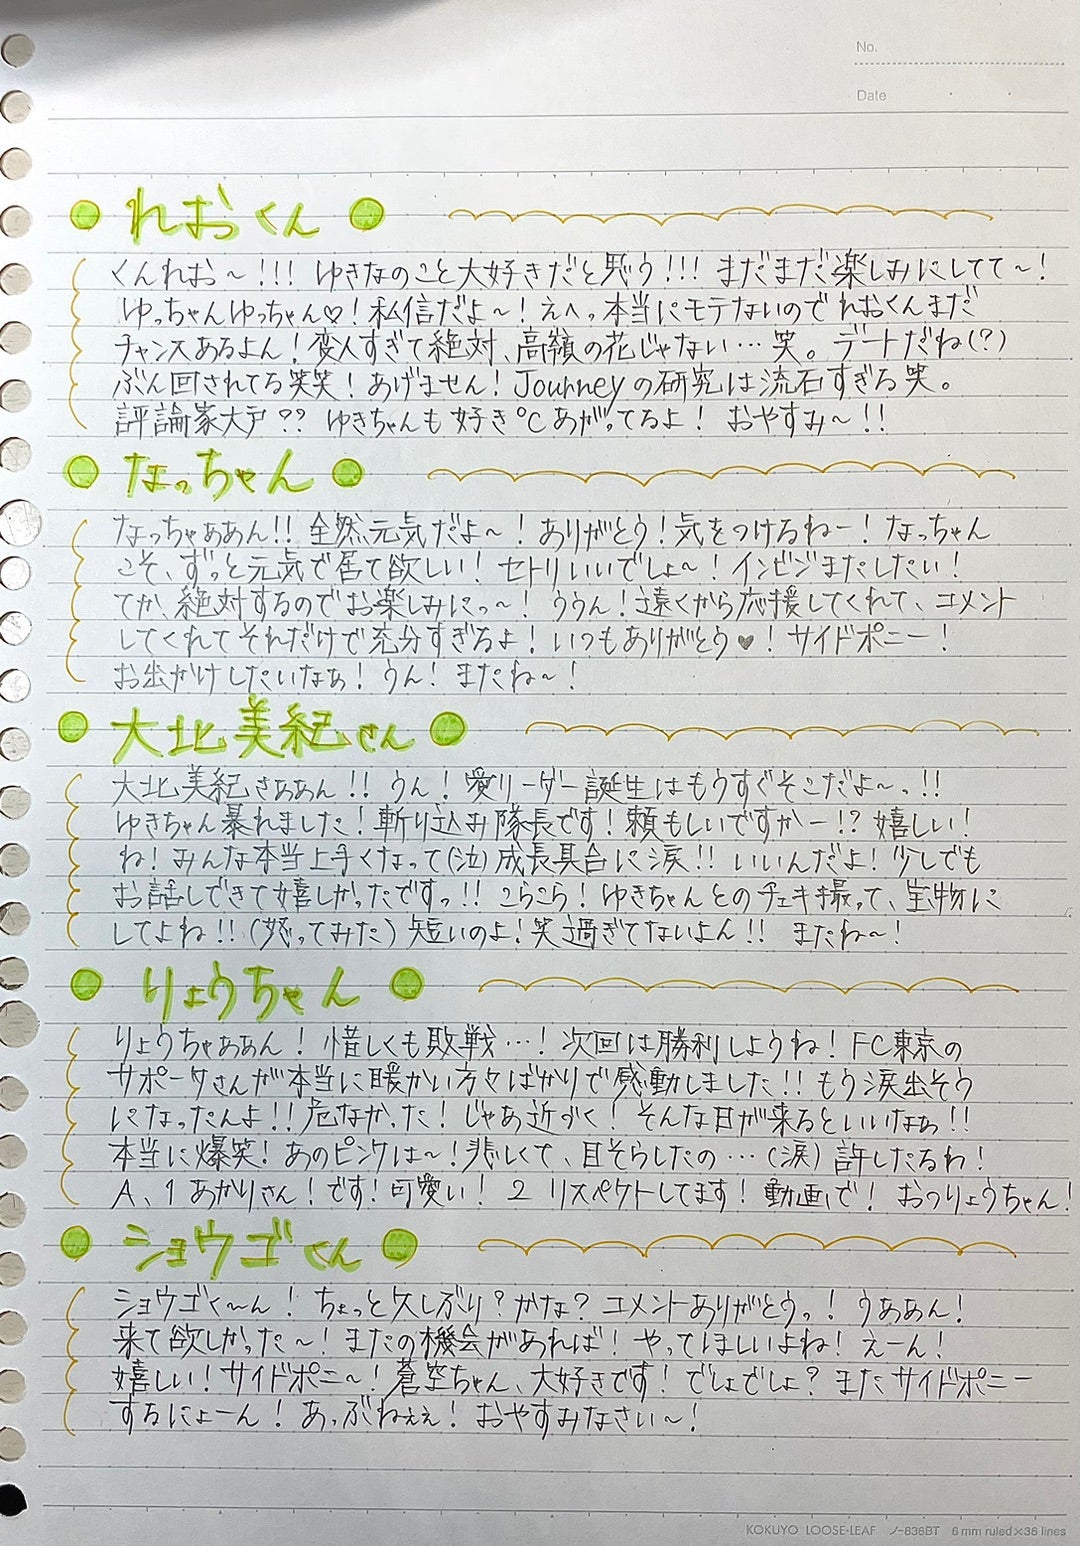 No.
Date
れおくん
くんれお～!!! ゆきなのこと大好きだと思う!!! まだまだ楽しみにしてて～!
ゆっちゃんゆっちゃん♡! 私信だよ～! えへっ本当にモテないのでれおくんまだ
チャンスあるよん! 変人すぎて絶対、高嶺の花じゃない…笑。デートだね(?)
ぶん回されてる笑笑! あげません! Journeyの研究は流石すぎる笑。
評論家大戸?? ゆきちゃんも好き℃あがってるよ! おやすみ～!!
なっちゃん
なっちゃぁあん!! 全然元気だよ～! ありがとう! 気をつけるねー! なっちゃん
こそ、ずっと元気で居て欲しい! セトリいいでしょ～! インビジまたしたい!
てか、絶対するのでお楽しみにっ～! ううん! 遠くから応援してくれて、コメント
してくれてそれだけで充分すぎるよ! いつもありがとう♥! サイドポニー!
お出かけしたいなぁ! うん! またね～!
大北美紀さん
大北美紀さぁあん!! うん! 愛リーダー誕生はもうすぐそこだよ～っ!!
ゆきちゃん暴れました! 斬り込み隊長です! 頼もしいですかー!? 嬉しい!
ね! みんな本当上手くなって(泣) 成長具合に涙!! いいんだよ! 少しでも
お話しできて嬉しかったですっ!! こらこら! ゆきちゃんとのチェキ撮って、宝物に
してよね!! (怒ってみた) 短いのよ! 笑 過ぎてないよん!! またね～!
りょうちゃん
りょうちゃぁあん! 惜しくも敗戦…! 次回は勝利しようね! FC東京の
サポータさんが本当に暖かい方々ばかりで感動しました!! もう涙出そう
になったんよ!! 危なかった! じゃあ近づく! そんな日が来るといいなぁ!!
本当に爆笑! あのピンクは～! 悲しくて、目そらしたの…(涙) 許したるわ!
A、1 あかりさん! です! 可愛い! 2 リスペクトしてます! 動画で! おつりょうちゃん!
ショウゴくん
ショウゴく～ん! ちょっと久しぶり? かな? コメントありがとうっ! うああん!
来て欲しかった～! またの機会があれば! やってほしいよね! えーん!
嬉しい! サイドポニ～! 蒼空ちゃん、大好きです! でしょでしょ? またサイドポニー
するにょーん! あっぶねぇぇ! おやすみなさい～!
KOKUYO LOOSE-LEAF ノ-836BT 6mm ruled×36 lines